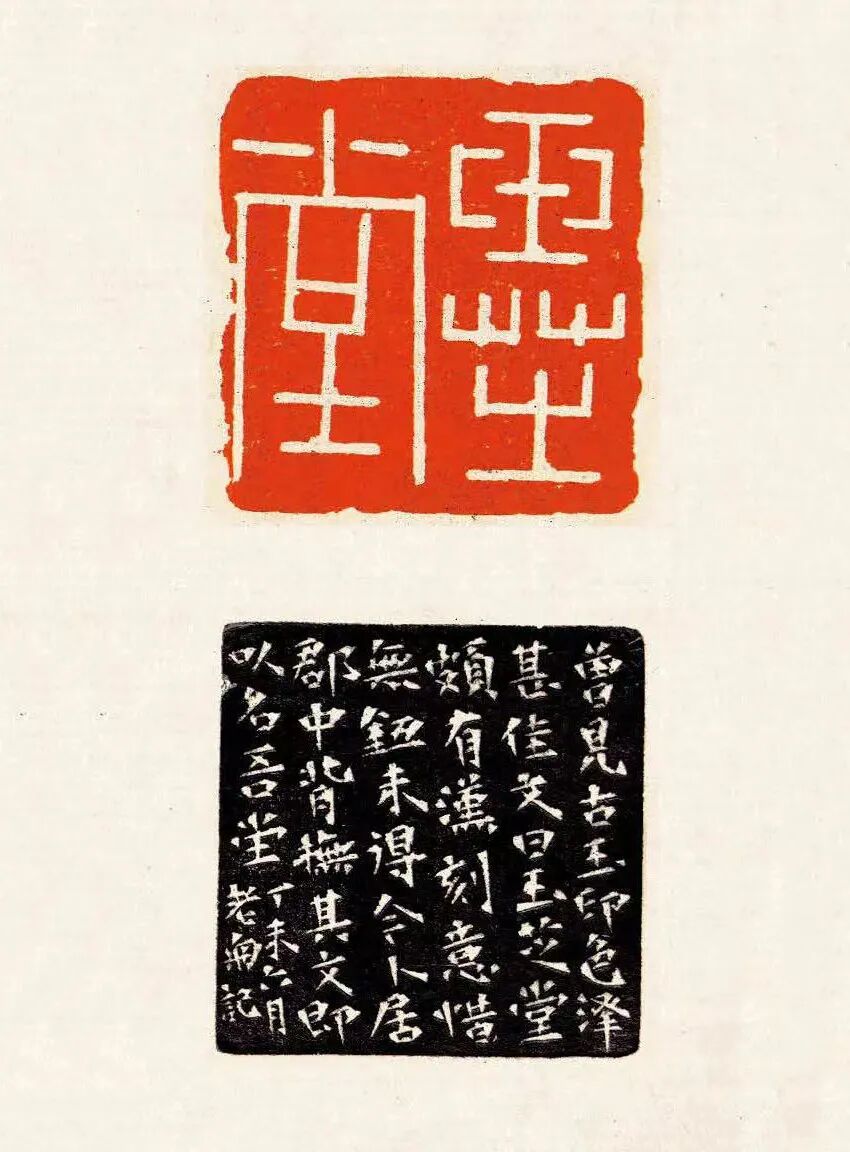 玉芝
堂
曾見古玉印色澤
甚佳文曰玉芝堂
頗有漢刻意惜
無鈕未得令人居
郡中背橅其文即
以名吾堂
丁未六月
老記